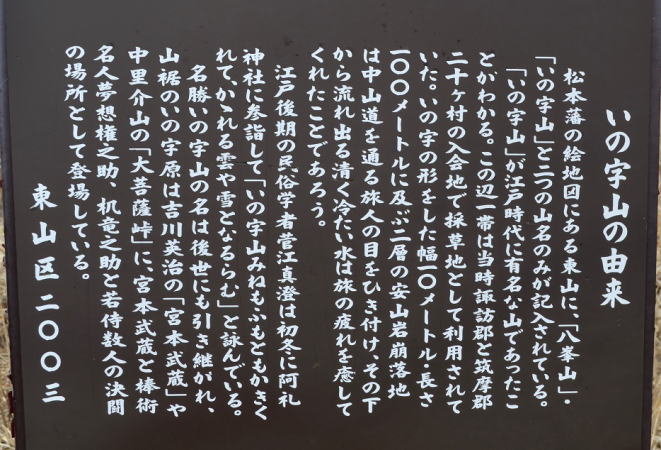 いの字山の由来
松本藩の絵地図にある東山に、「八峯山」・
「いの字山」と二つの山名のみが記入されている。
「いの字山」が江戸時代に有名な山であったこ
とがわかる。この辺一帯は当時諏訪郡と筑摩郡
二十ヶ村の入会地で採草地として利用されて
いた。いの字の形をした幅一〇メートル・長さ
一〇〇メートルに及ぶ二層の安山岩崩落地
は中山道を通る旅人の目をひき付け、その下
から流れ出る清く冷たい水は旅の疲れを癒して
くれたことであろう。
江戸後期の民俗学者菅江真澄は初冬に阿礼
神社に参詣して「いの字山みねもふもともかきく
れて、かゝれる雲や雪となるらむ」と詠んでいる。
名勝いの字山の名は後世にも引き継がれ、
山裾のいの字原は吉川英治の「宮本武蔵」や
中里介山の「大菩薩峠」に、宮本武蔵と棒術
名人夢想権之助、机竜之助と若侍数人の決闘
の場所として登場している。
東山区二〇〇三